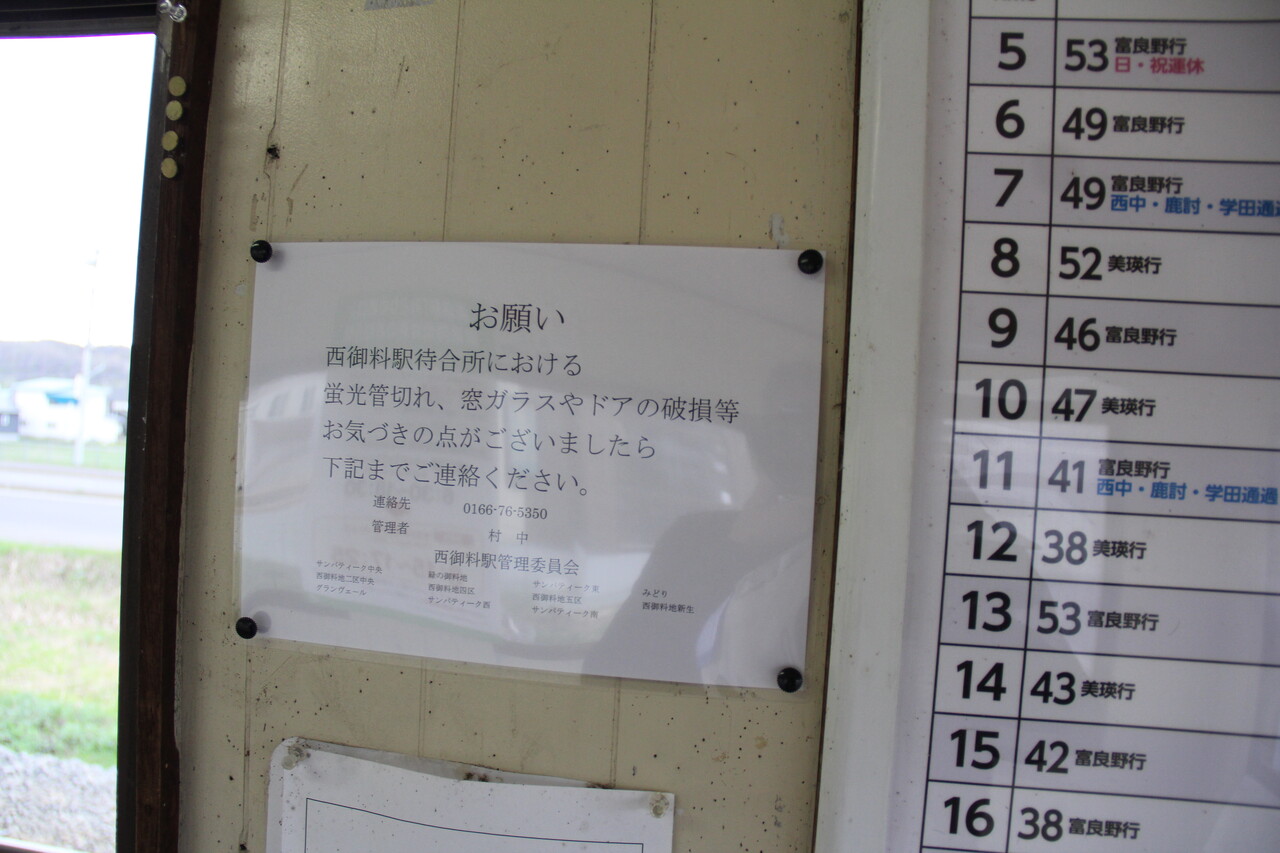 お願い
西御料駅待合所における
蛍光管切れ、窓ガラスやドアの破損等
お気づきの点がございましたら
下記までご連絡ください。
連絡先 0166-76-5350
管理者 村 中
西御料駅管理委員会
サンパティーク中央 緑の御料地 サンパティーク東 みどり
西御料地二区中央 西御料地四区 西御料地五区 西御料地新生
グランヴェール サンパティーク西 サンパティーク南
5 53 富良野行
日・祝運休
6 49 富良野行
7 49 富良野行
西中・鹿討・学田通過
8 52 美瑛行
9 46 富良野行
10 47 美瑛行
11 41 富良野行
西中・鹿討・学田通過
12 38 美瑛行
13 53 富良野行
14 43 美瑛行
15 42 富良野行
16 38 富良野行